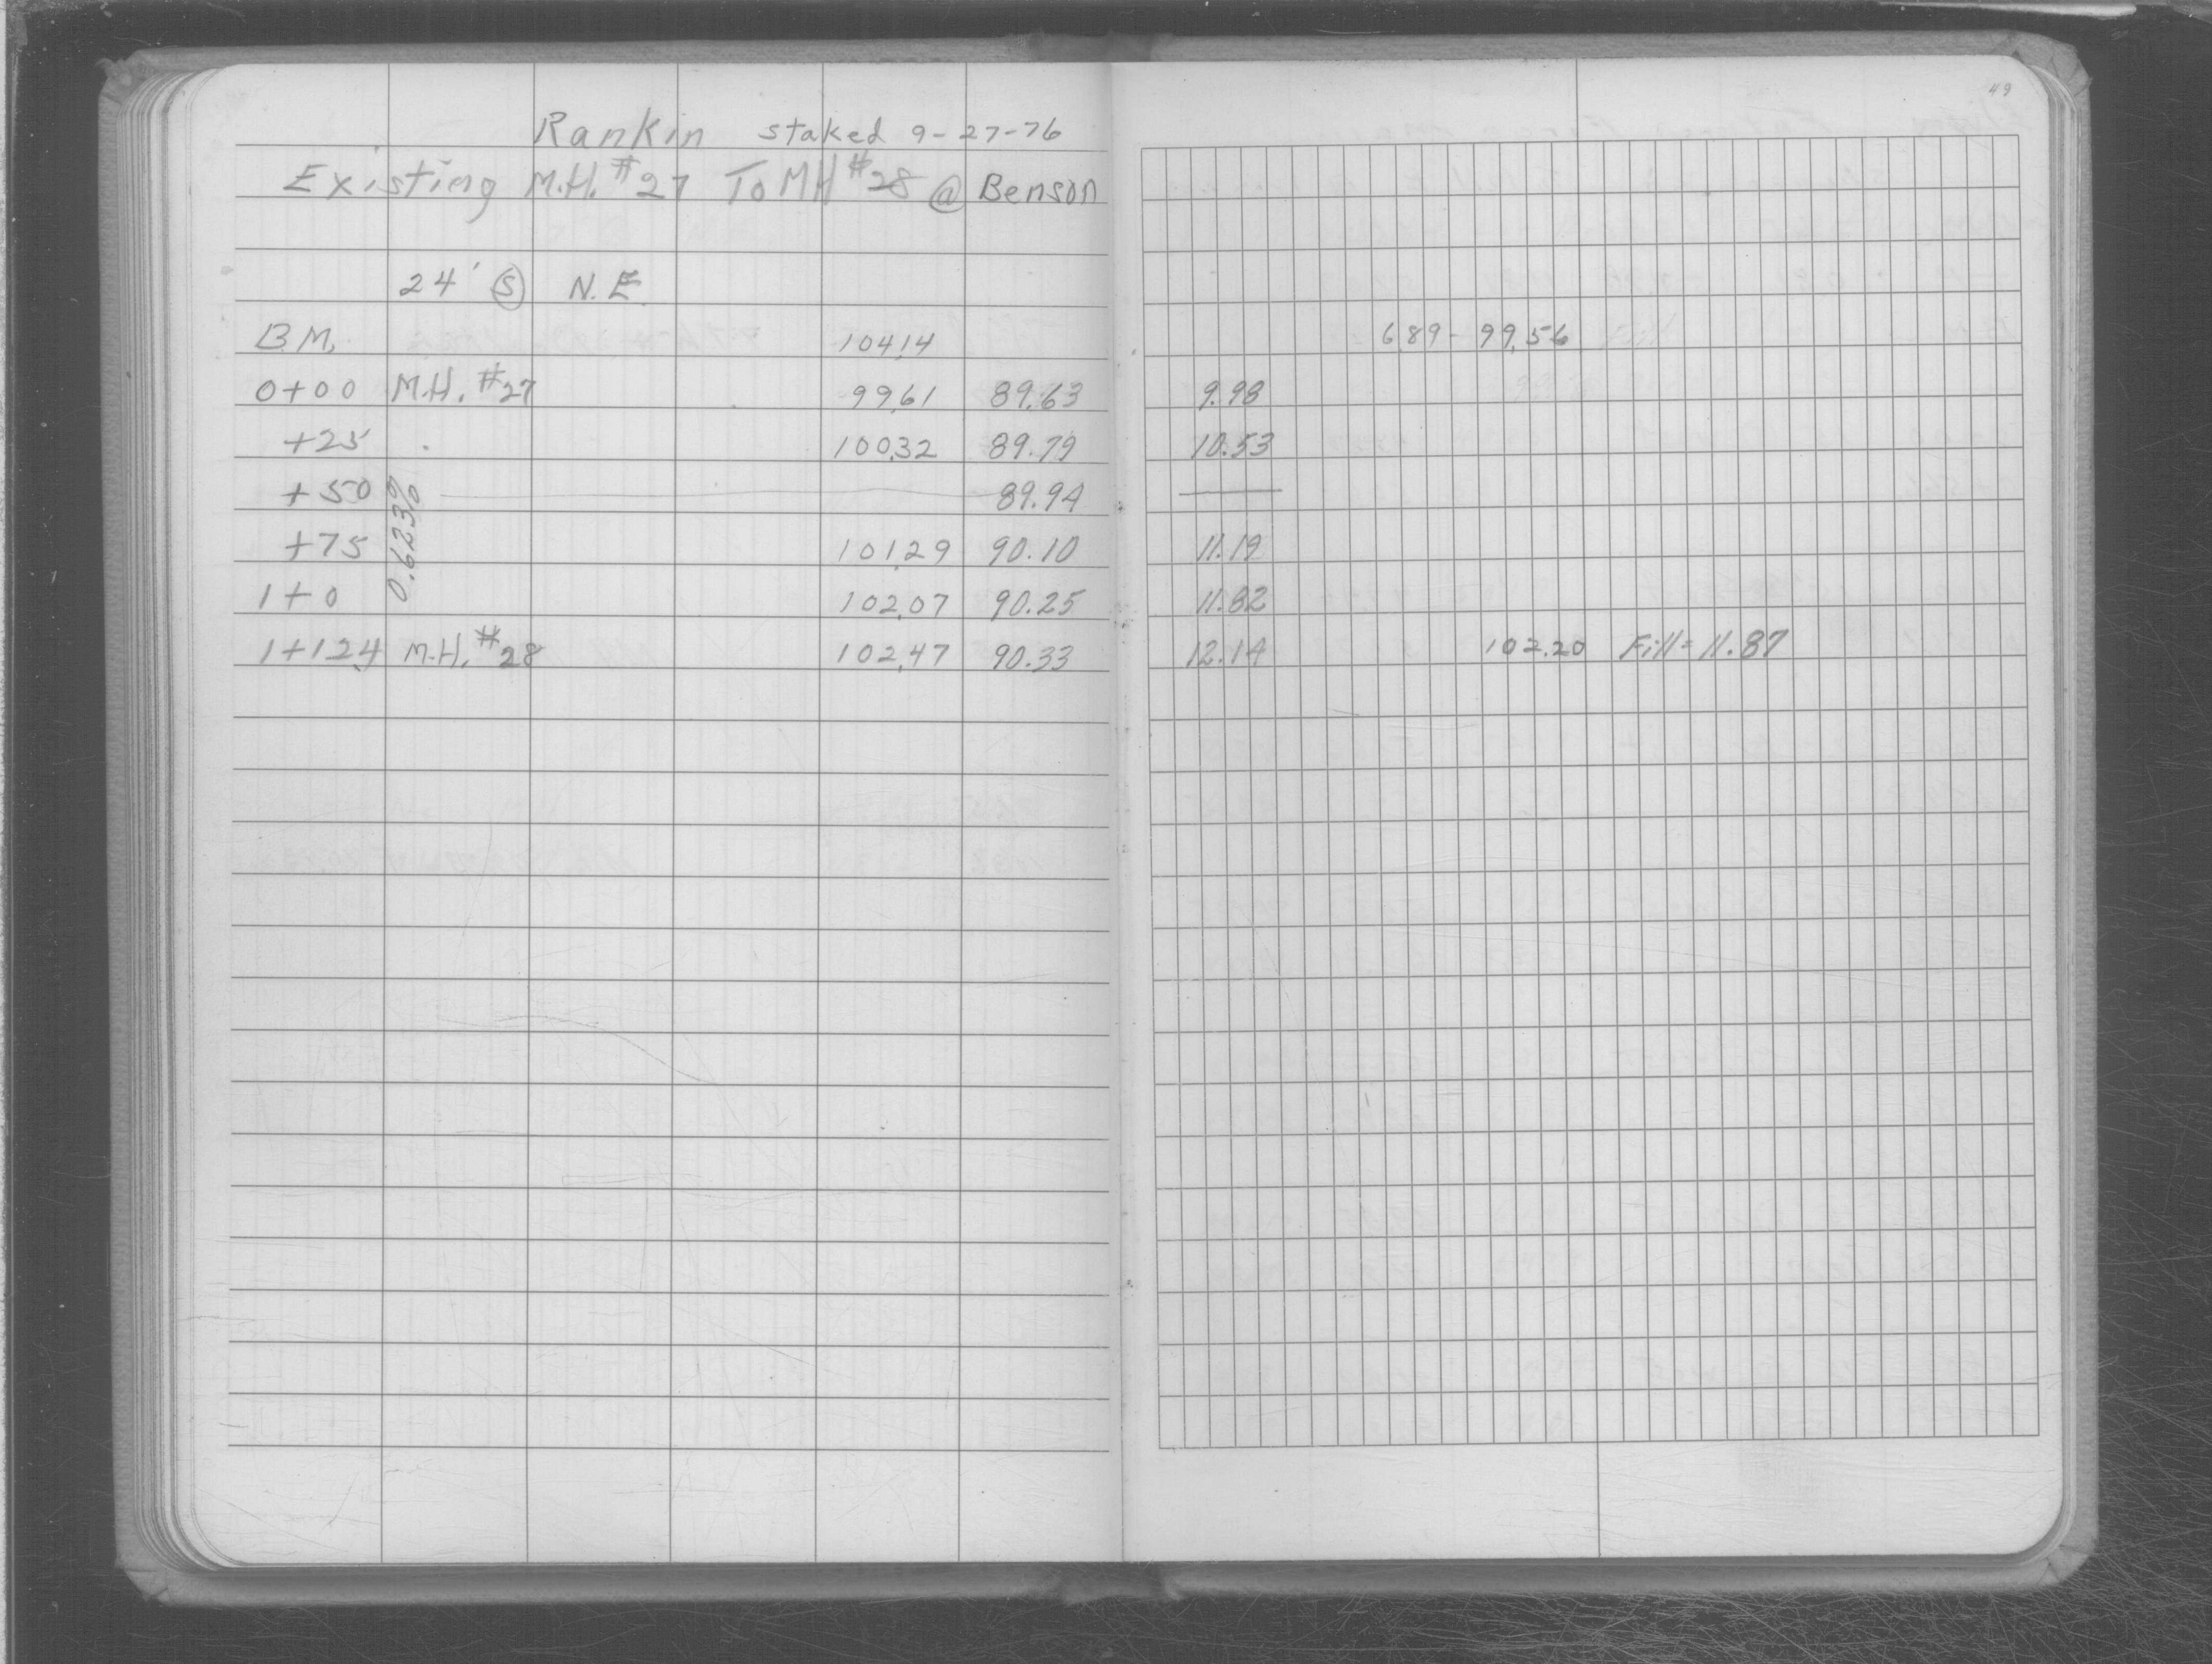 49
Rankin staked 9-27-76
Existing M.H. #27 To MH #28 @ Benson
24' S N.E.
B.M. 104.14 6.89 - 99.56
0+00 M.H. #27 99.61 89.63 9.98
+25 100.32 89.79 10.53
+50 89.94
+75 101.29 90.10 11.19
1+0 102.07 90.25 11.82
1+12.4 M.H. #28 102.47 90.33 12.14 102.20 Fill = 11.87
0.623%